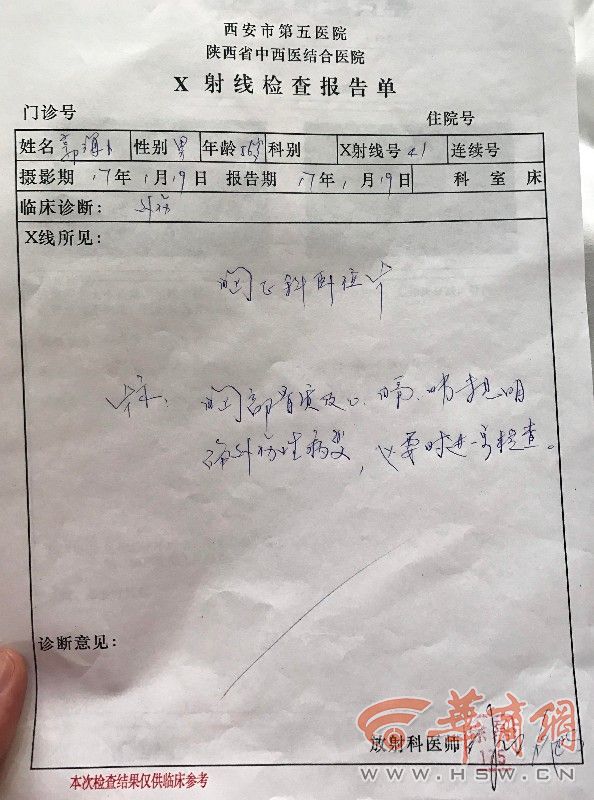 西安市第五医院
陕西省中西医结合医院
X 射线检查报告单
门诊号 住院号
姓名 郭 性别 男 年龄 56岁 科别 X射线号 41 连续号
摄影期 17年 1月19日 报告期 17年 1月19日 科 室 床
临床诊断： 外伤
X线所见：
胸正斜卧位片
片示：胸部骨质及心、膈、肺未见明
确外伤性病变，必要时进一步检查。
诊断意见：
华商网
放射科医师
WWW.HSW.CN
本次检查结果仅供临床参考